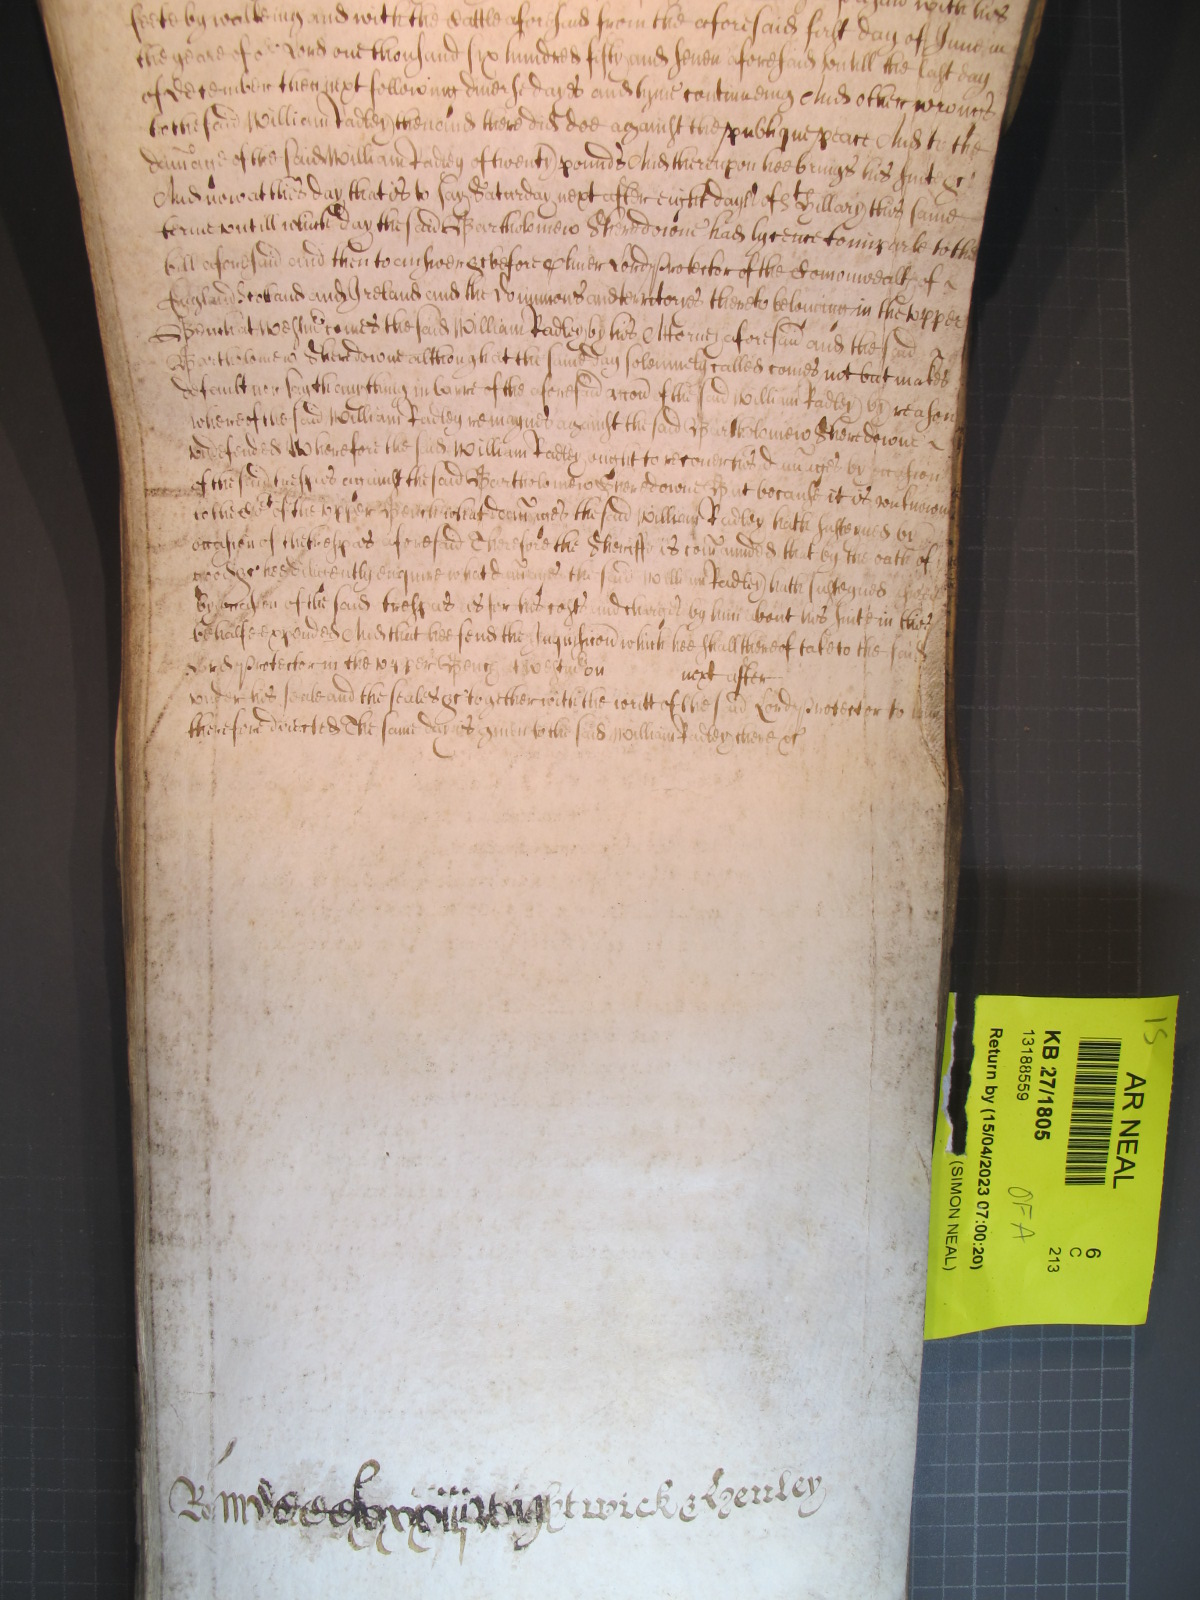 feete by walkeing and with the Cattle aforesaid from the aforesaid first day of June in
the yeare of or Lord one thousand six hundred fifty and seven aforesaid untill the last day
of December then next following diverse dayes and tymes continueing And other wronges
to the said William Radley then and there did doe against the publique peace And to the
damage of the said William Radley of twenty pounds And thereupon hee brings his suite &c
And now at this day that is to say Saturday next after eight dayes of St Hillary this same
terme untill which day the said Bartholomew Sheredowne had lycence to imparle to the
bill aforesaid and then to answer &c before Oliver Lord Protector of the Comonwealth of
England Scotland and Ireland and the Dominions and territories thereto belonging in the upper
Bench at Westmr comes the said William Radley by his Attorney aforesaid and the said
Bartholomew Sheredowne although at the same day solemnely called comes not but makes
default nor sayth anything in barre of the aforesaid accon of the said William Radley by reason
whereof the said William Radley remaynes against the said Bartholomew Sheredowne
undefended Wherefore the said William Radley ought to recover his damages by occasion
of the said trespas against the said Bartholomew Sheredowne But because it is unknowne
to the Cort of the upper Bench what damages the said William Radley hath susteyned by
occasion of the trespas aforesaid Therefore the Sheriffe is commanded that by the oath of
good &c hee diligently enquire what damages the said William Radley hath susteyned
by occasion of the said trespas as for his costs and charges by him about his suite in this
behalfe expended And that hee send the Inquisicon which hee shall thereof take to the said
Lord Protector in the upper Bench at Westm on next after
under his seale and the seales &c together with the writt of the said Lord Protector to him
therefore directed The same day is given to the said William Radley there &c
Wightwick & Henley
AR NEAL
KB 27/1805
13188559
Return by (15/04/2023 07:00:20)
(SIMON NEAL)
6
C
213
OFA
15